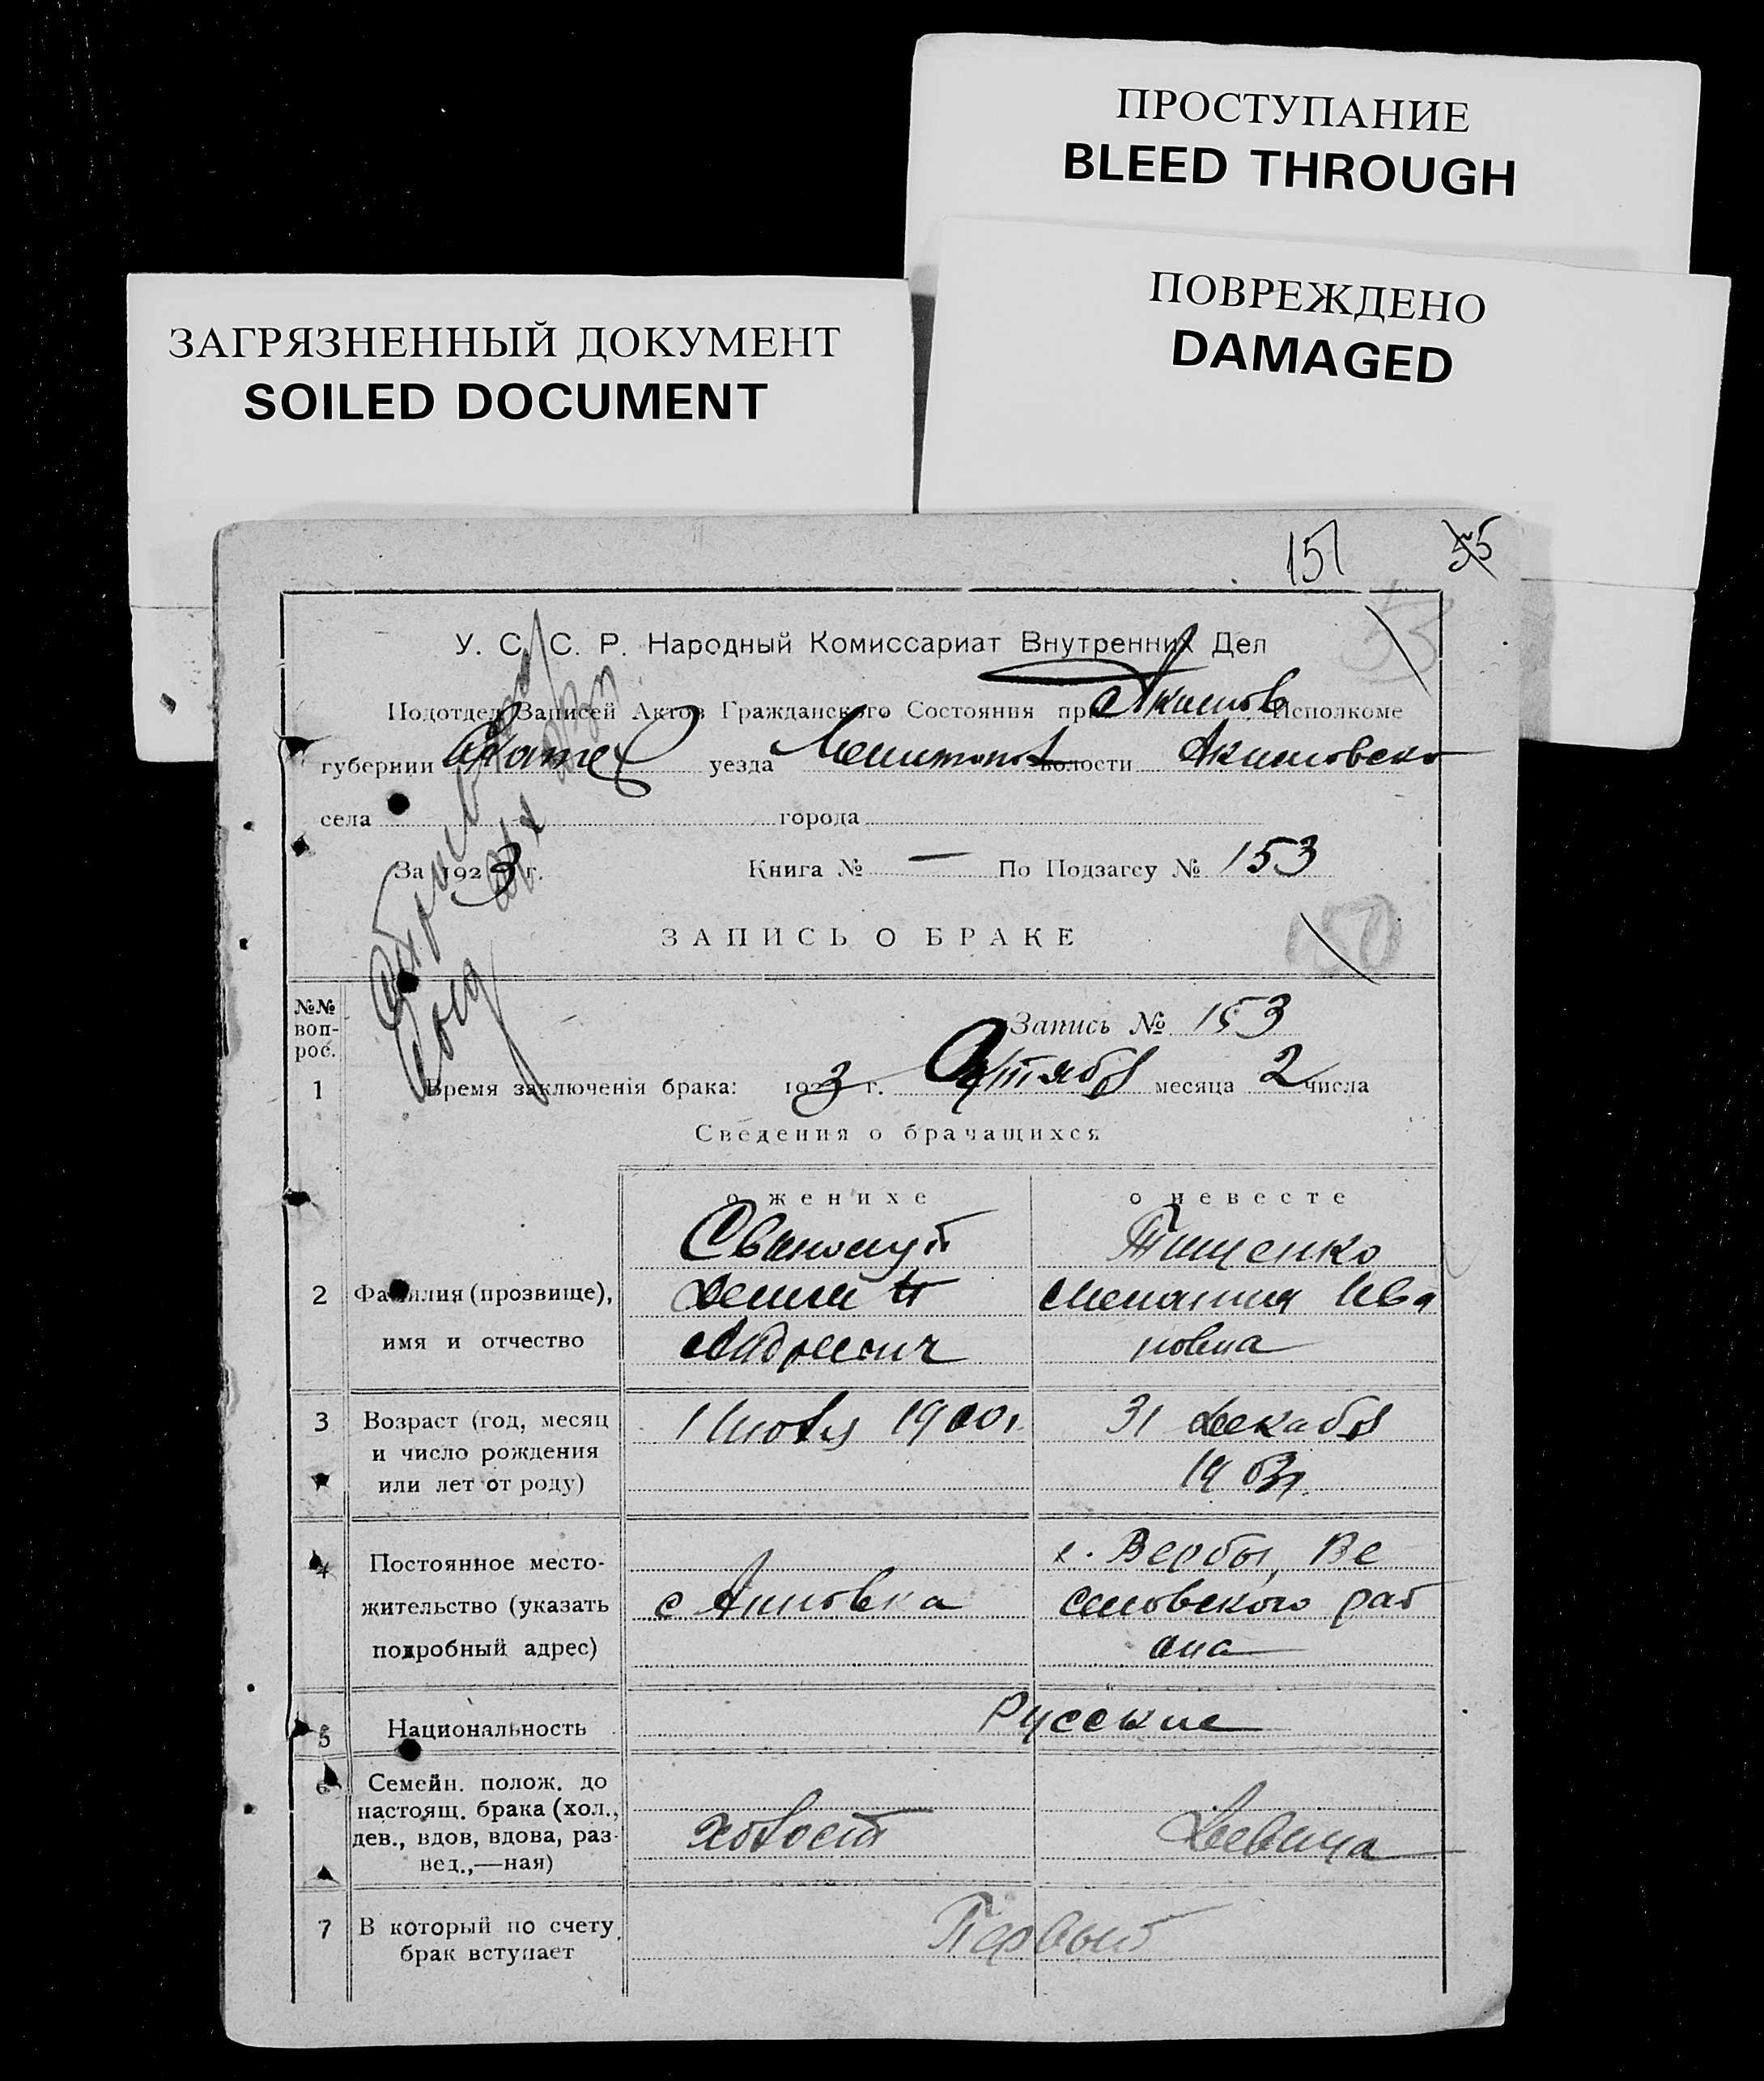 ПРОСТУПАНИЕ
BLEED THROUGH
ПОВРЕЖДЕНО
DAMAGED
ЗАГРЯЗНЕННЫЙ ДОКУМЕНТ
SOILED DOCUMENT
151 55
53
У. С. С. Р. Народный Комиссариат Внутренних Дел
Подотдел Записей Актов Гражданского Состояния при Акимов Исполкоме
губернии уезда волости Акимовско
села города
За 1923 г. Книга № — По Подзагсу № 153
ЗАПИСЬ О БРАКЕ
150
№№ воп-рос.
Запись № 153
1 Время заключенія брака: 1923 г. Октябр месяца 2 числа
Сведения о брачащихся
о женихе о невесте
Тищенко
2 Фамилия (прозвище), Мелания Ива
имя и отчество Андреевич новна
3 Возраст (год, месяц 1 Июля 1900г. 31 Декабр
и число рождения 1903г.
или лет от роду)
4 Постоянное место- х. Вербы, Ве
жительство (указать с Анновка селовского рай
подробный адрес) она
5 Национальность Русские
6 Семейн. полож. до
настоящ. брака (хол.,
дев., вдов, вдова, раз- холост Девица
вед.,—ная)
7 В который по счету Первый
брак вступает